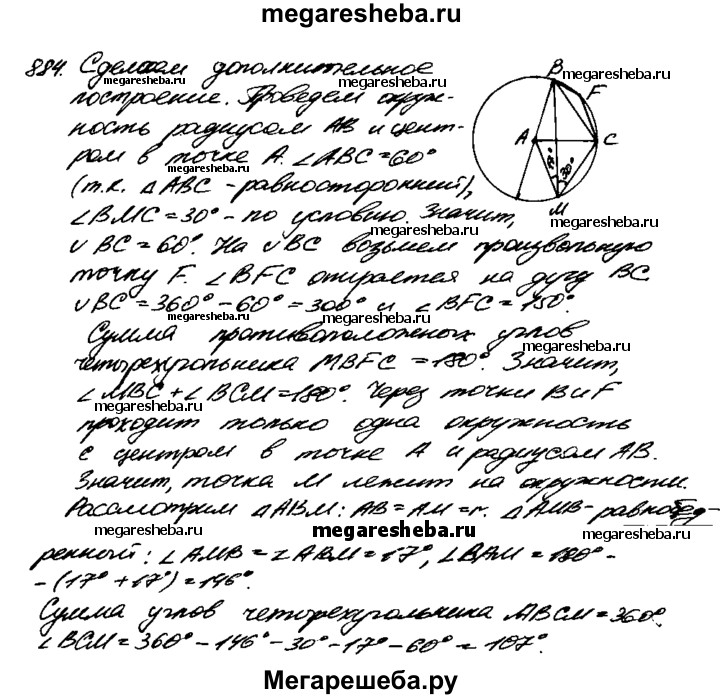 megaresheba.ru
884. Сделаем дополнительное
megaresheba.ru megaresheba.ru
построение. Проведем окруж-
megaresheba.ru
ность радиусом AB и цент-
ром в точке A. ∠ABC = 60°
megaresheba.ru
(т.к. △ABC - равносторонний),
∠BMC = 30° - по условию. Значит,
megaresheba.ru
∪BC = 60°. На ∪BC возьмем произвольную
точку F. ∠BFC опирается на дугу BC
∪BC = 360° - 60° = 300° и ∠BFC = 150°.
megaresheba.ru megaresheba.ru megaresheba.ru
Сумма противоположных углов
четырехугольника MBFC = 180°. Значит,
∠MBC + ∠BCM = 180°. Через точки B и F
megaresheba.ru megaresheba.ru megaresheba.ru
проходит только одна окружность
с центром в точке A и радиусом AB.
Значит, точка M лежит на окружности.
megaresheba.ru
Рассмотрим △ABM: AB = AM = r. △AMB - равнобед-
megaresheba.ru megaresheba.ru megaresheba.ru
ренный: ∠AMB = ∠ABM = 17°, ∠BAM = 180° -
- (17° + 17°) = 146°.
Сумма углов четырехугольника ABCM = 360°.
∠BCM = 360° - 146° - 30° - 17° - 60° = 107°.
B
F
A
C
17°
30°
M
Мегарешеба.ру